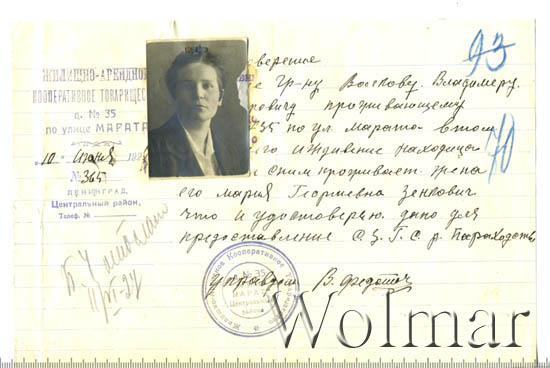 93
70
ЖИЛИЩНО-АРЕНДНОЕ
КООПЕРАТИВНОЕ ТОВАРИЩЕС
д. № 35
по улице МАРАТА
10 июня 192
№ 365
ЛЕНИНГРАД,
Центральный район,
Телеф. №
верение
гр-ну Воскову Владимеру
овичу проживающему
35 по ул. Марата в том
его иждивение находица
с ним проживает жена
его Мария Георгиевна Зенкович
что и удостоверяю дано для
предоставление С.З.Г.С. р. Параходств
Управдом В. Федотов
№ 35
МАРАТА
Центральный
района
Wolmar